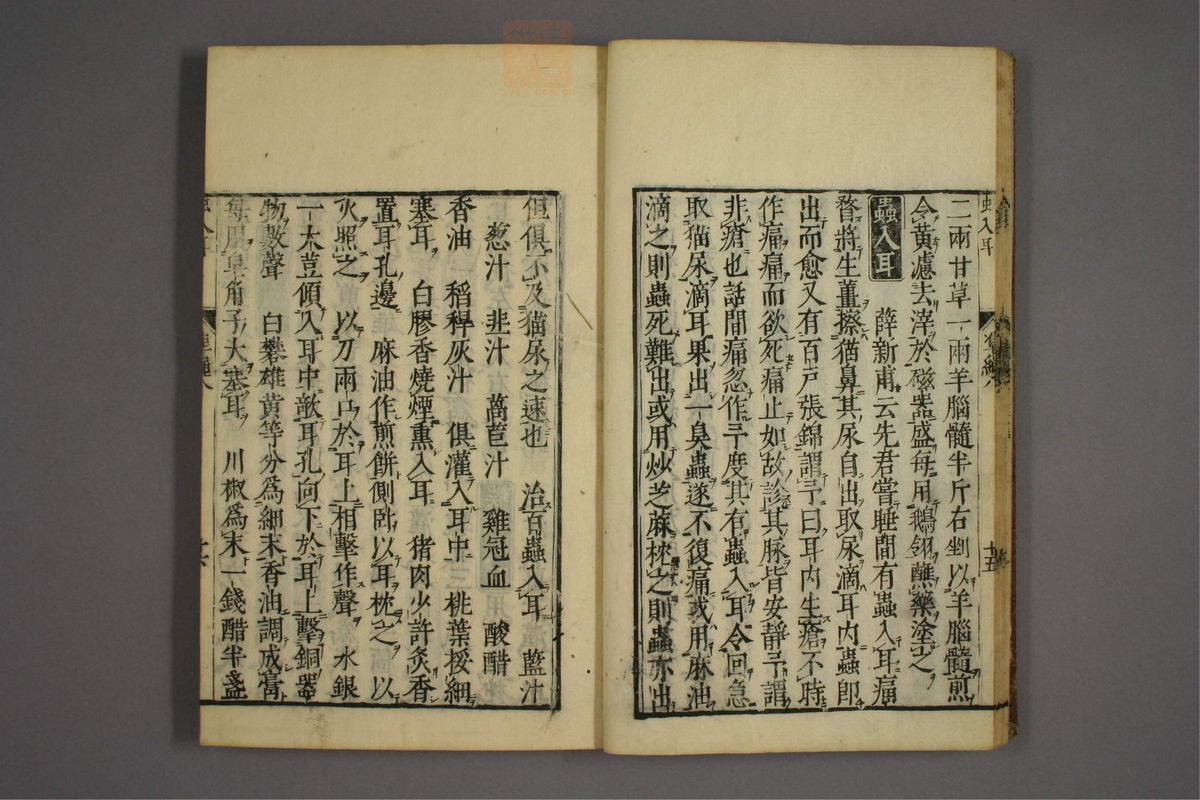 二兩甘草一兩羊腦髓半斤右剉以羊腦髓煎
令黃濾去滓於磁器盛每用鵝翎蘸藥塗之
蟲入耳 薛新甫云先君嘗睡間有蟲入耳痛
瞀將生薑擦猫鼻其尿自出取尿滴耳內蟲卽
出而愈又有百戸張錦謂予曰耳內生瘡不時
作痛痛而欲死痛止如故診其脉皆安靜予謂
非瘡也話間痛忽作予度其有蟲入耳令回急
取猫尿滴耳果出一臭蟲遂不復痛或用麻油
滴之則蟲死難出或用炒芝蔴枕之則蟲亦出
蟲入耳
十五
但俱不及猫尿之速也 治百蟲入耳 藍汁
葱汁 韭汁 萵苣汁 雞冠血 酸醋
香油 稻稈灰汁 俱灌入耳中 桃葉挼細
塞耳 白膠香燒煙熏入耳 猪肉少許炙香
置耳孔邊 麻油作煎餅側卧以耳枕之 以
火照之 以刀兩口於耳上相擊作聲 水銀
一大荳傾入耳中欹耳孔向下於耳上擊銅器
物數聲 白礬雄黃等分爲細末香油調成膏
每用皁角子大塞耳 川椒爲末一錢醋半盞